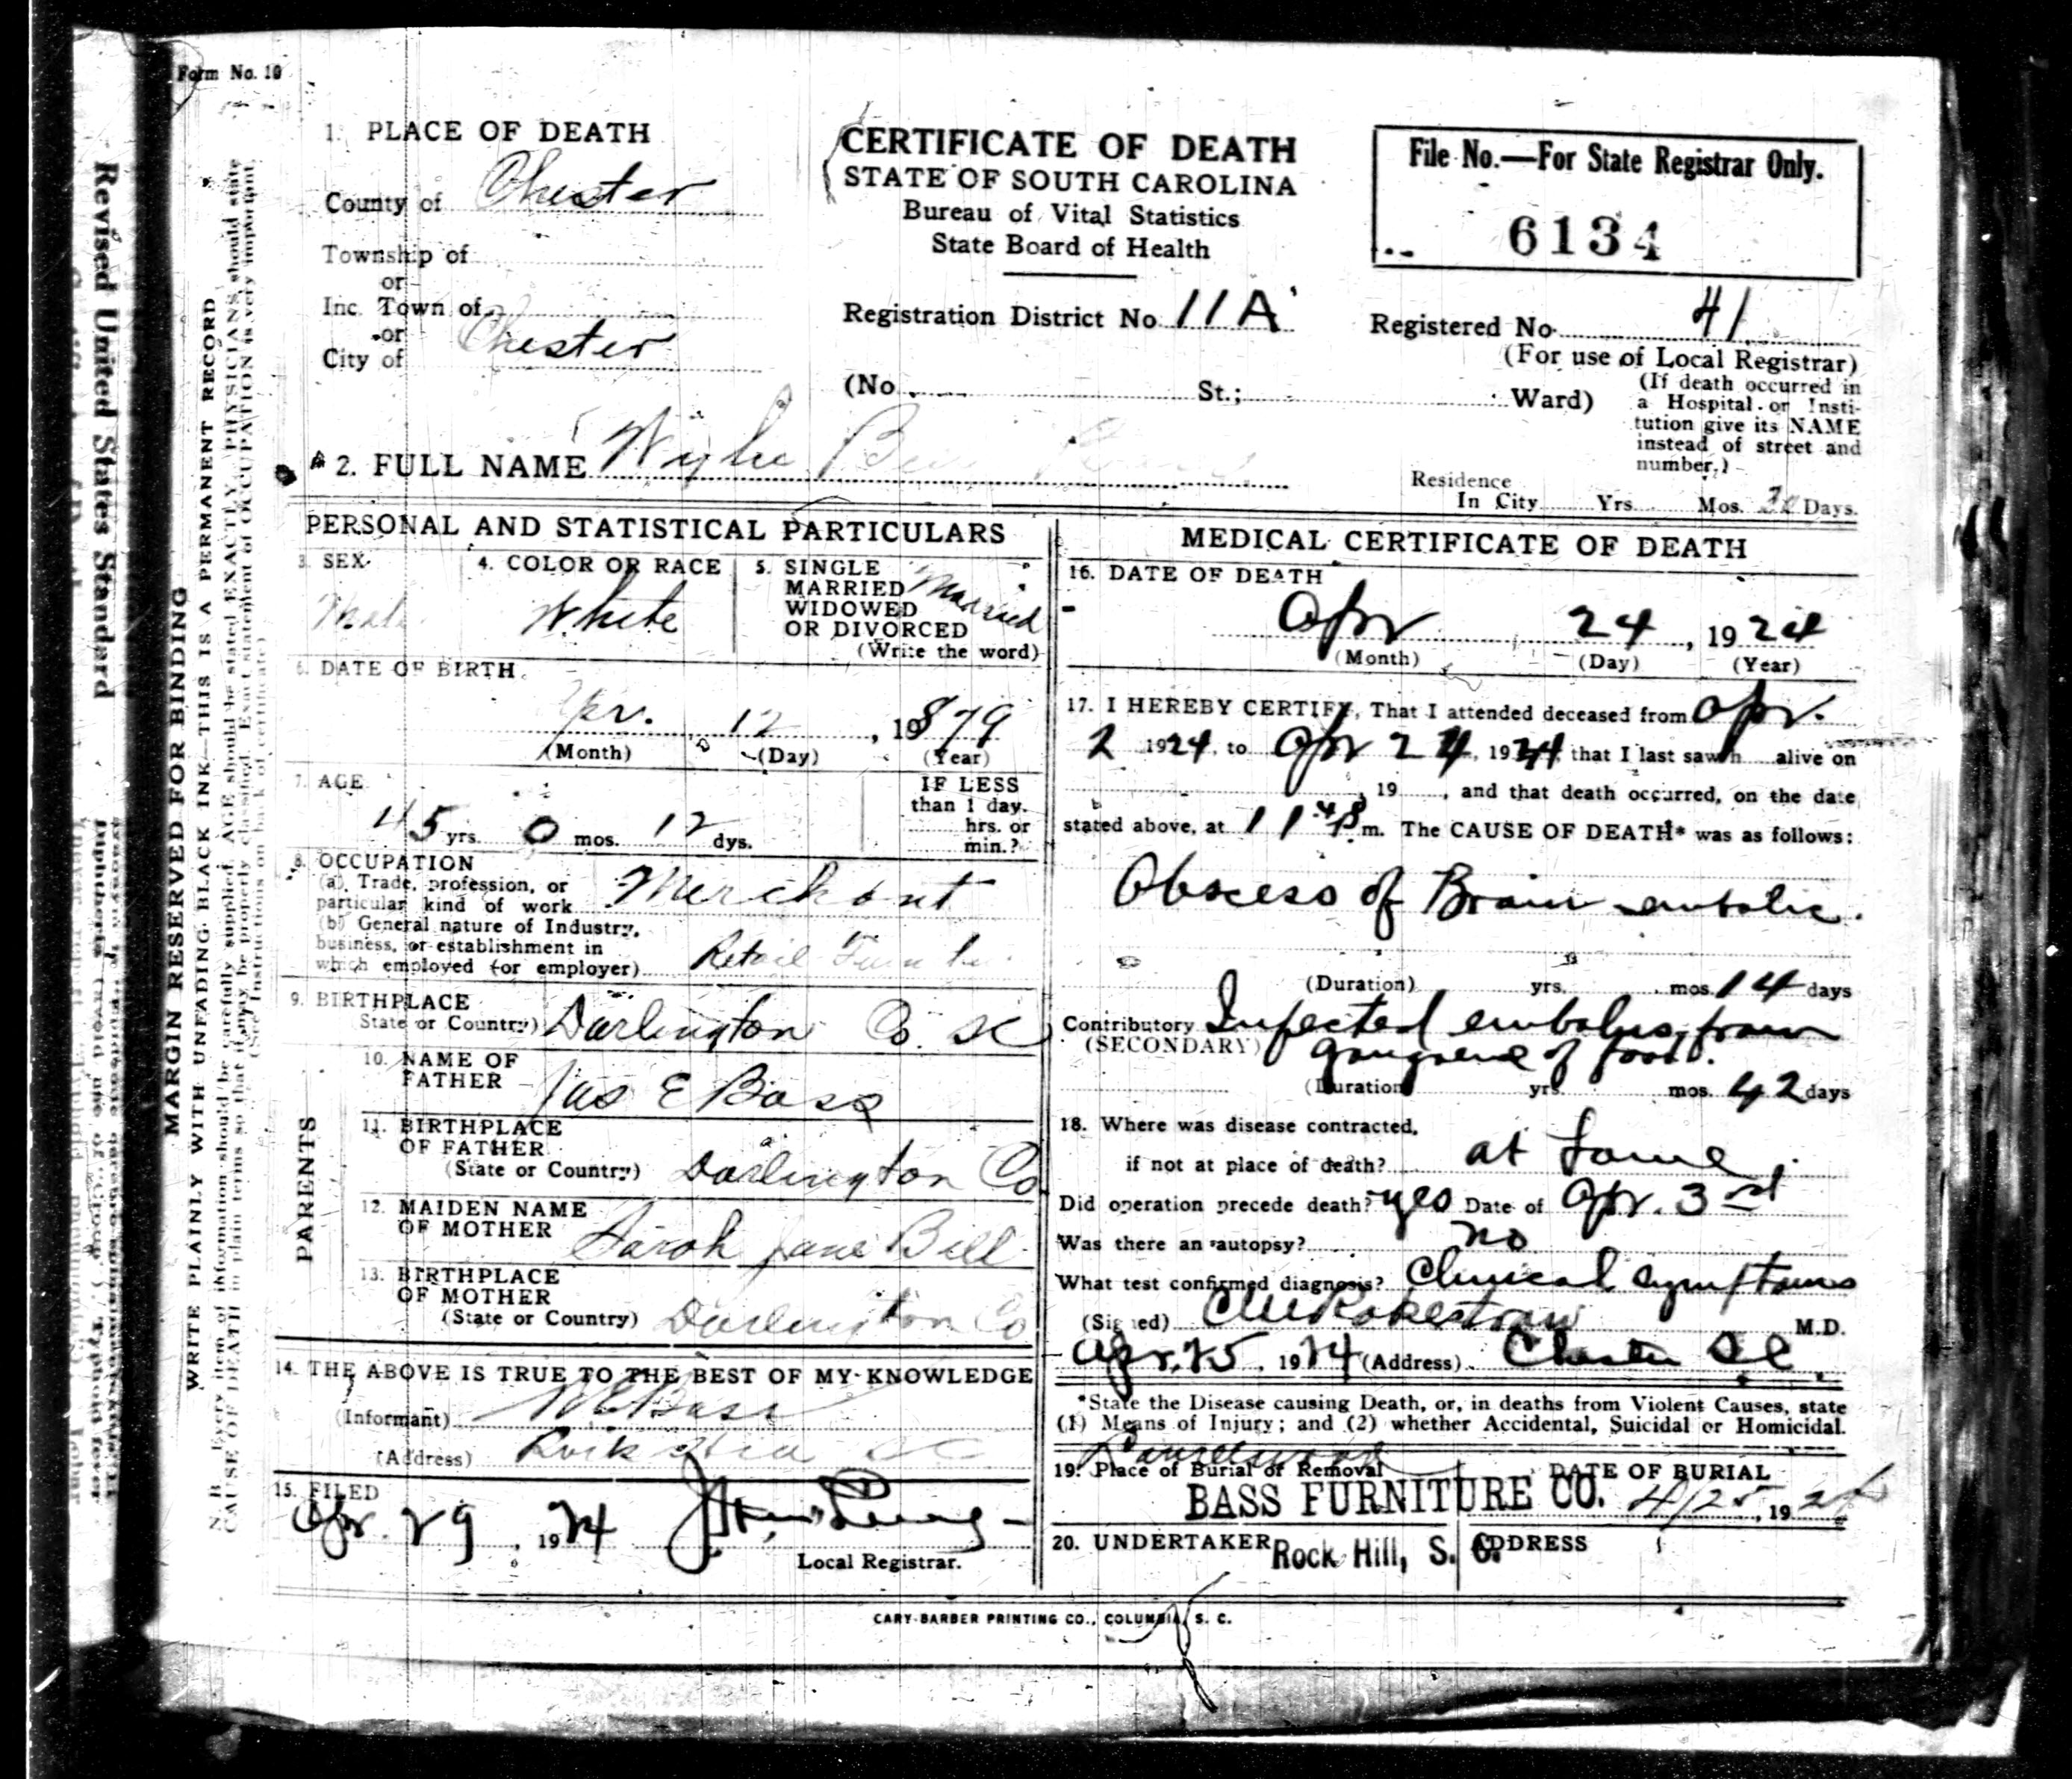 Form No. 10
1. PLACE OF DEATH
County of Chester
Township of
or
Inc. Town of
or
City of Chester
CERTIFICATE OF DEATH
STATE OF SOUTH CAROLINA
Bureau of Vital Statistics
State Board of Health
Registration District No. 11A
(No. St.; Ward)
File No.—For State Registrar Only.
6134
Registered No. 41
(For use of Local Registrar)
(If death occurred in
a Hospital or Insti-
tution give its NAME
instead of street and
number.)
2. FULL NAME Wylie
Residence
In City Yrs. Mos. Days.
PERSONAL AND STATISTICAL PARTICULARS
3. SEX
Male
4. COLOR OR RACE
White
5. SINGLE
MARRIED
WIDOWED
OR DIVORCED
(Write the word)
Married
6. DATE OF BIRTH
Apr. 12, 1879
(Month) (Day) (Year)
7. AGE
45 yrs. 0 mos. 12 dys.
IF LESS
than 1 day.
hrs. or
min.?
8. OCCUPATION
(a) Trade, profession, or
particular kind of work Merchant
(b) General nature of Industry,
business, or establishment in
which employed (or employer) Retail
9. BIRTHPLACE
(State or Country) Darlington Co. SC
PARENTS
10. NAME OF
FATHER Jas E Bass
11. BIRTHPLACE
OF FATHER
(State or Country) Darlington Co
12. MAIDEN NAME
OF MOTHER Sarah Jane Bell
13. BIRTHPLACE
OF MOTHER
(State or Country) Darlington Co
14. THE ABOVE IS TRUE TO THE BEST OF MY KNOWLEDGE
(Informant) Bass
(Address)
15. FILED
Apr. 29, 1924
Local Registrar.
MEDICAL CERTIFICATE OF DEATH
16. DATE OF DEATH
Apr 24, 1924
(Month) (Day) (Year)
17. I HEREBY CERTIFY, That I attended deceased from Apr.
2 1924, to Apr 24, 1924, that I last saw h alive on
, 19, and that death occurred, on the date
stated above, at 11 m. The CAUSE OF DEATH* was as follows:
Abscess of Brain embolic.
(Duration) yrs. mos. 14 days
Contributory Infected embolus from
(SECONDARY) gangrene of foot.
(Duration) yrs. mos. 42 days
18. Where was disease contracted,
if not at place of death? at home
Did operation precede death? yes Date of Apr. 3rd
Was there an autopsy? no
What test confirmed diagnosis? Clinical symptoms
(Signed) Rakestraw M.D.
Apr. 25, 1924 (Address) Chester SC
*State the Disease causing Death, or, in deaths from Violent Causes, state
(1) Means of Injury; and (2) whether Accidental, Suicidal or Homicidal.
Laurelwood
19. Place of Burial or Removal
DATE OF BURIAL
BASS FURNITURE CO. 4/25, 1924
20. UNDERTAKER
Rock Hill, S. C.
ADDRESS
CARY-BARBER PRINTING CO., COLUMBIA, S. C.
MARGIN RESERVED FOR BINDING
WRITE PLAINLY WITH UNFADING BLACK INK—THIS IS A PERMANENT RECORD
N. B. Every item of information should be carefully supplied. AGE should be stated EXACTLY. PHYSICIANS should state
CAUSE OF DEATH in plain terms so that it may be properly classified. Exact statement of OCCUPATION is very important.
(See Instructions on back of certificate)
Revised United States Standard